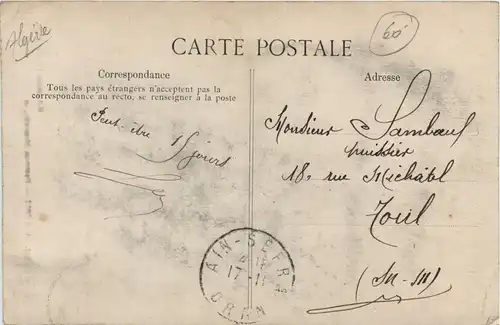 Algérie
60
CARTE POSTALE
Correspondance
Tous les pays étrangers n'acceptent pas la
correspondance au recto, se renseigner à la poste
Peut-être
15 jours
Adresse
Monsieur Sambœuf
huissier
18 rue Michâtel
Toul
(M-M)
AIN-SEFRA
17-11
ORAN